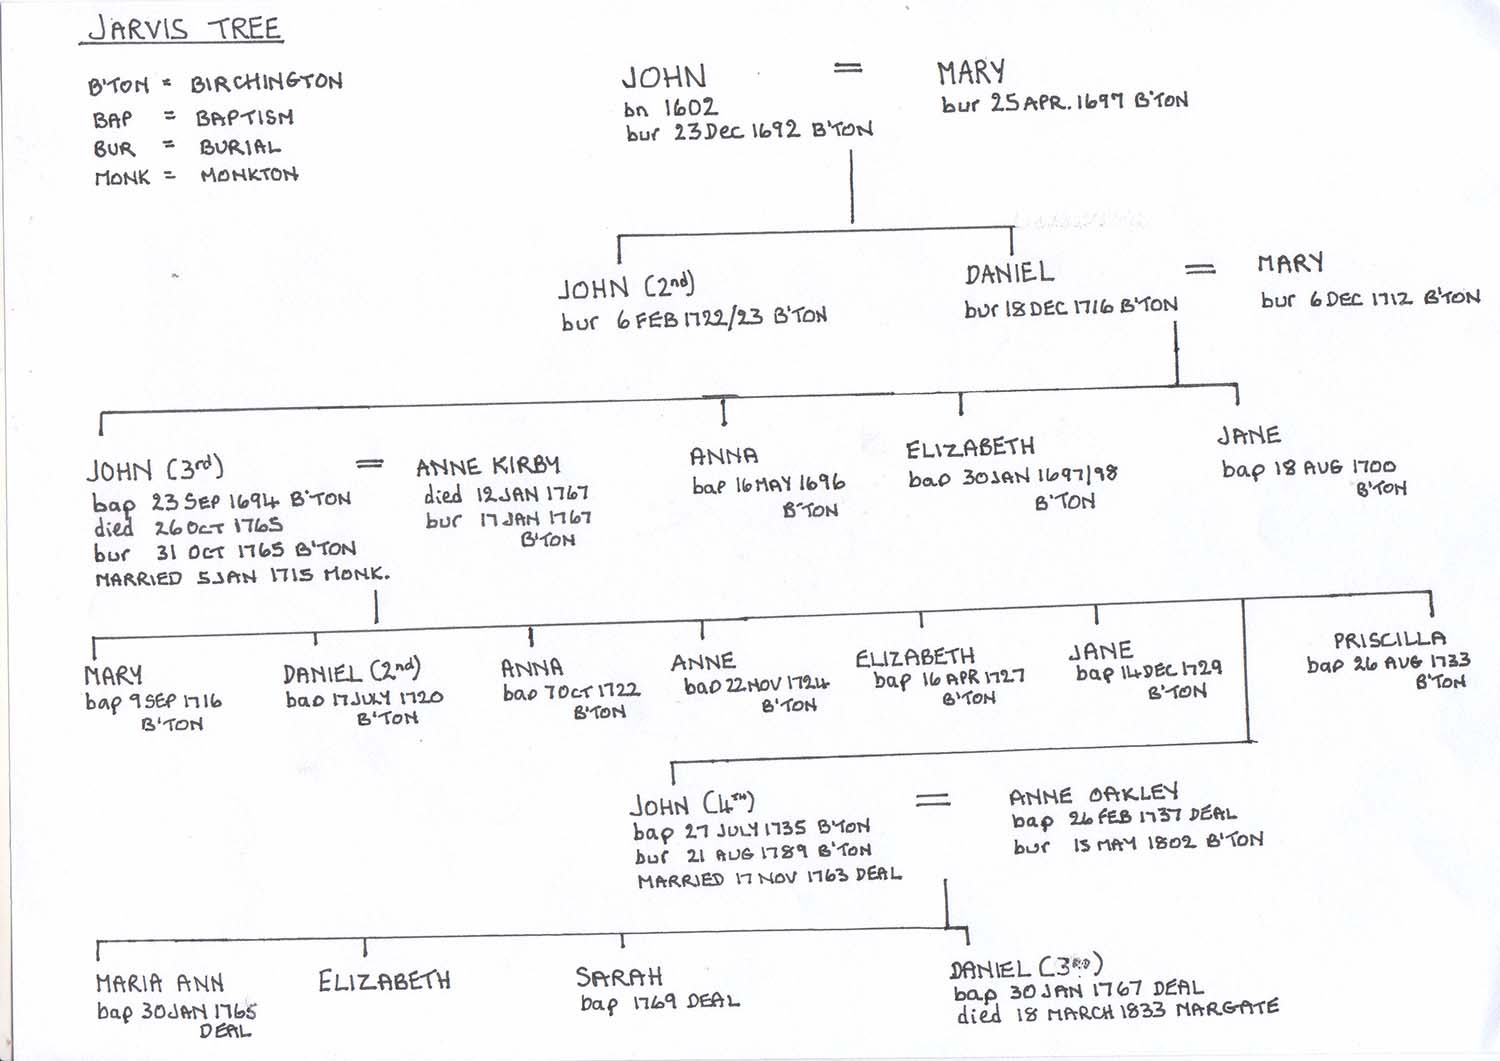 JARVIS TREE
B'TON = BIRCHINGTON
BAP = BAPTISM
BUR = BURIAL
MONK = MONKTON
JOHN = MARY
bn 1602
bur 23 Dec 1692 B'TON
bur 25 APR. 1697 B'TON
JOHN (2nd)
bur 6 FEB 1722/23 B'TON
DANIEL = MARY
bur 18 DEC 1716 B'TON
bur 6 DEC 1712 B'TON
JOHN (3rd) = ANNE KIRBY
bap 23 SEP 1694 B'TON
died 26 OCT 1765
bur 31 OCT 1765 B'TON
MARRIED 5 JAN 1715 MONK.
died 12 JAN 1767
bur 17 JAN 1767
B'TON
ANNA
bap 16 MAY 1696
B'TON
ELIZABETH
bap 30 JAN 1697/98
B'TON
JANE
bap 18 AUG 1700
B'TON
MARY
bap 9 SEP 1716
B'TON
DANIEL (2nd)
bap 17 JULY 1720
B'TON
ANNA
bap 7 OCT 1722
B'TON
ANNE
bap 22 NOV 1724
B'TON
ELIZABETH
bap 16 APR 1727
B'TON
JANE
bap 14 DEC 1729
B'TON
PRISCILLA
bap 26 AUG 1733
B'TON
JOHN (4TH) = ANNE OAKLEY
bap 27 JULY 1735 B'TON
bur 21 AUG 1789 B'TON
MARRIED 17 NOV 1763 DEAL
bap 26 FEB 1737 DEAL
bur 15 MAY 1802 B'TON
MARIA ANN
bap 30 JAN 1765
DEAL
ELIZABETH
SARAH
bap 1769 DEAL
DANIEL (3RD)
bap 30 JAN 1767 DEAL
died 18 MARCH 1833 MARGATE